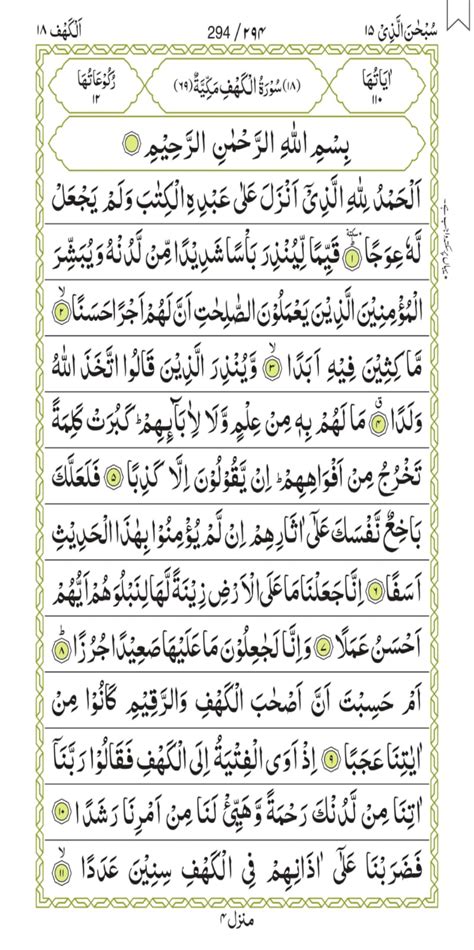 سُبْحٰنَ الَّذِیْۤ ۱۵
294 / ۲۹۴
اَلْكَهْف ۱۸
اٰیَاتُهَا ۱۱۰
(۱۸) سُوْرَةُ الْكَهْفِ مَكِّیَّةٌ (۶۹)
رُكُوْعَاتُهَا ۱۲
بِسْمِ اللّٰهِ الرَّحْمٰنِ الرَّحِیْمِ
اَلْحَمْدُ لِلّٰهِ الَّذِیْۤ اَنْزَلَ عَلٰى عَبْدِهِ الْكِتٰبَ وَلَمْ یَجْعَلْ
لَّهٗ عِوَجًا ۱ قَیِّمًا لِّیُنْذِرَ بَاْسًا شَدِیْدًا مِّنْ لَّدُنْهُ وَیُبَشِّرَ
الْمُؤْمِنِیْنَ الَّذِیْنَ یَعْمَلُوْنَ الصّٰلِحٰتِ اَنَّ لَهُمْ اَجْرًا حَسَنًا ۲
مَّاكِثِیْنَ فِیْهِ اَبَدًا ۳ وَّیُنْذِرَ الَّذِیْنَ قَالُوا اتَّخَذَ اللّٰهُ
وَلَدًا ۴ مَا لَهُمْ بِهٖ مِنْ عِلْمٍ وَّلَا لِاٰبَآئِهِمْ ؕ كَبُرَتْ كَلِمَةً
تَخْرُجُ مِنْ اَفْوَاهِهِمْ ؕ اِنْ یَّقُوْلُوْنَ اِلَّا كَذِبًا ۵ فَلَعَلَّكَ
بَاخِعٌ نَّفْسَكَ عَلٰۤى اٰثَارِهِمْ اِنْ لَّمْ یُؤْمِنُوْا بِهٰذَا الْحَدِیْثِ
اَسَفًا ۶ اِنَّا جَعَلْنَا مَا عَلَى الْاَرْضِ زِیْنَةً لَّهَا لِنَبْلُوَهُمْ اَیُّهُمْ
اَحْسَنُ عَمَلًا ۷ وَاِنَّا لَجٰعِلُوْنَ مَا عَلَیْهَا صَعِیْدًا جُرُزًا ۸
اَمْ حَسِبْتَ اَنَّ اَصْحٰبَ الْكَهْفِ وَالرَّقِیْمِ كَانُوْا مِنْ
اٰیٰتِنَا عَجَبًا ۹ اِذْ اَوَى الْفِتْیَةُ اِلَى الْكَهْفِ فَقَالُوْا رَبَّنَاۤ
اٰتِنَا مِنْ لَّدُنْكَ رَحْمَةً وَّهَیِّئْ لَنَا مِنْ اَمْرِنَا رَشَدًا ۱۰
فَضَرَبْنَا عَلٰۤى اٰذَانِهِمْ فِی الْكَهْفِ سِنِیْنَ عَدَدًا ۱۱
منزل ۴